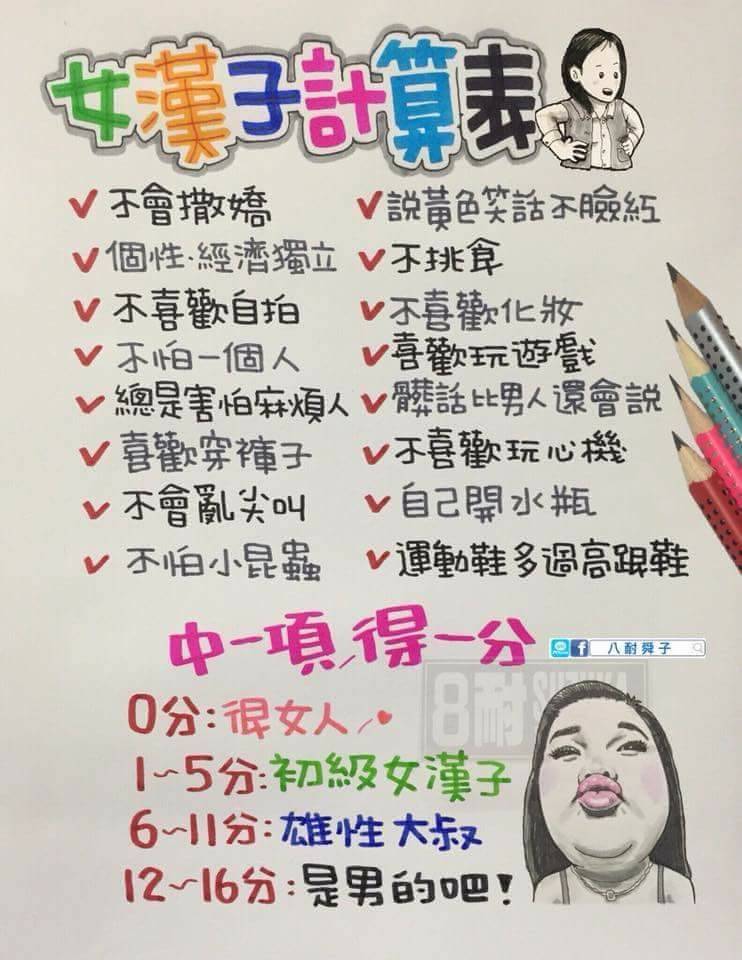 女漢子計算表
不會撒嬌
個性·經濟獨立
不喜歡自拍
不怕一個人
總是害怕麻煩人
喜歡穿褲子
不會亂尖叫
不怕小昆蟲
說黃色笑話不臉紅
不挑食
不喜歡化妝
喜歡玩遊戲
髒話比男人還會說
不喜歡玩心機
自己開水瓶
運動鞋多過高跟鞋
中一項,得一分
八耐舜子
8耐
0分:很女人
1~5分:初級女漢子
6~11分:雄性大叔
12~16分:是男的吧!